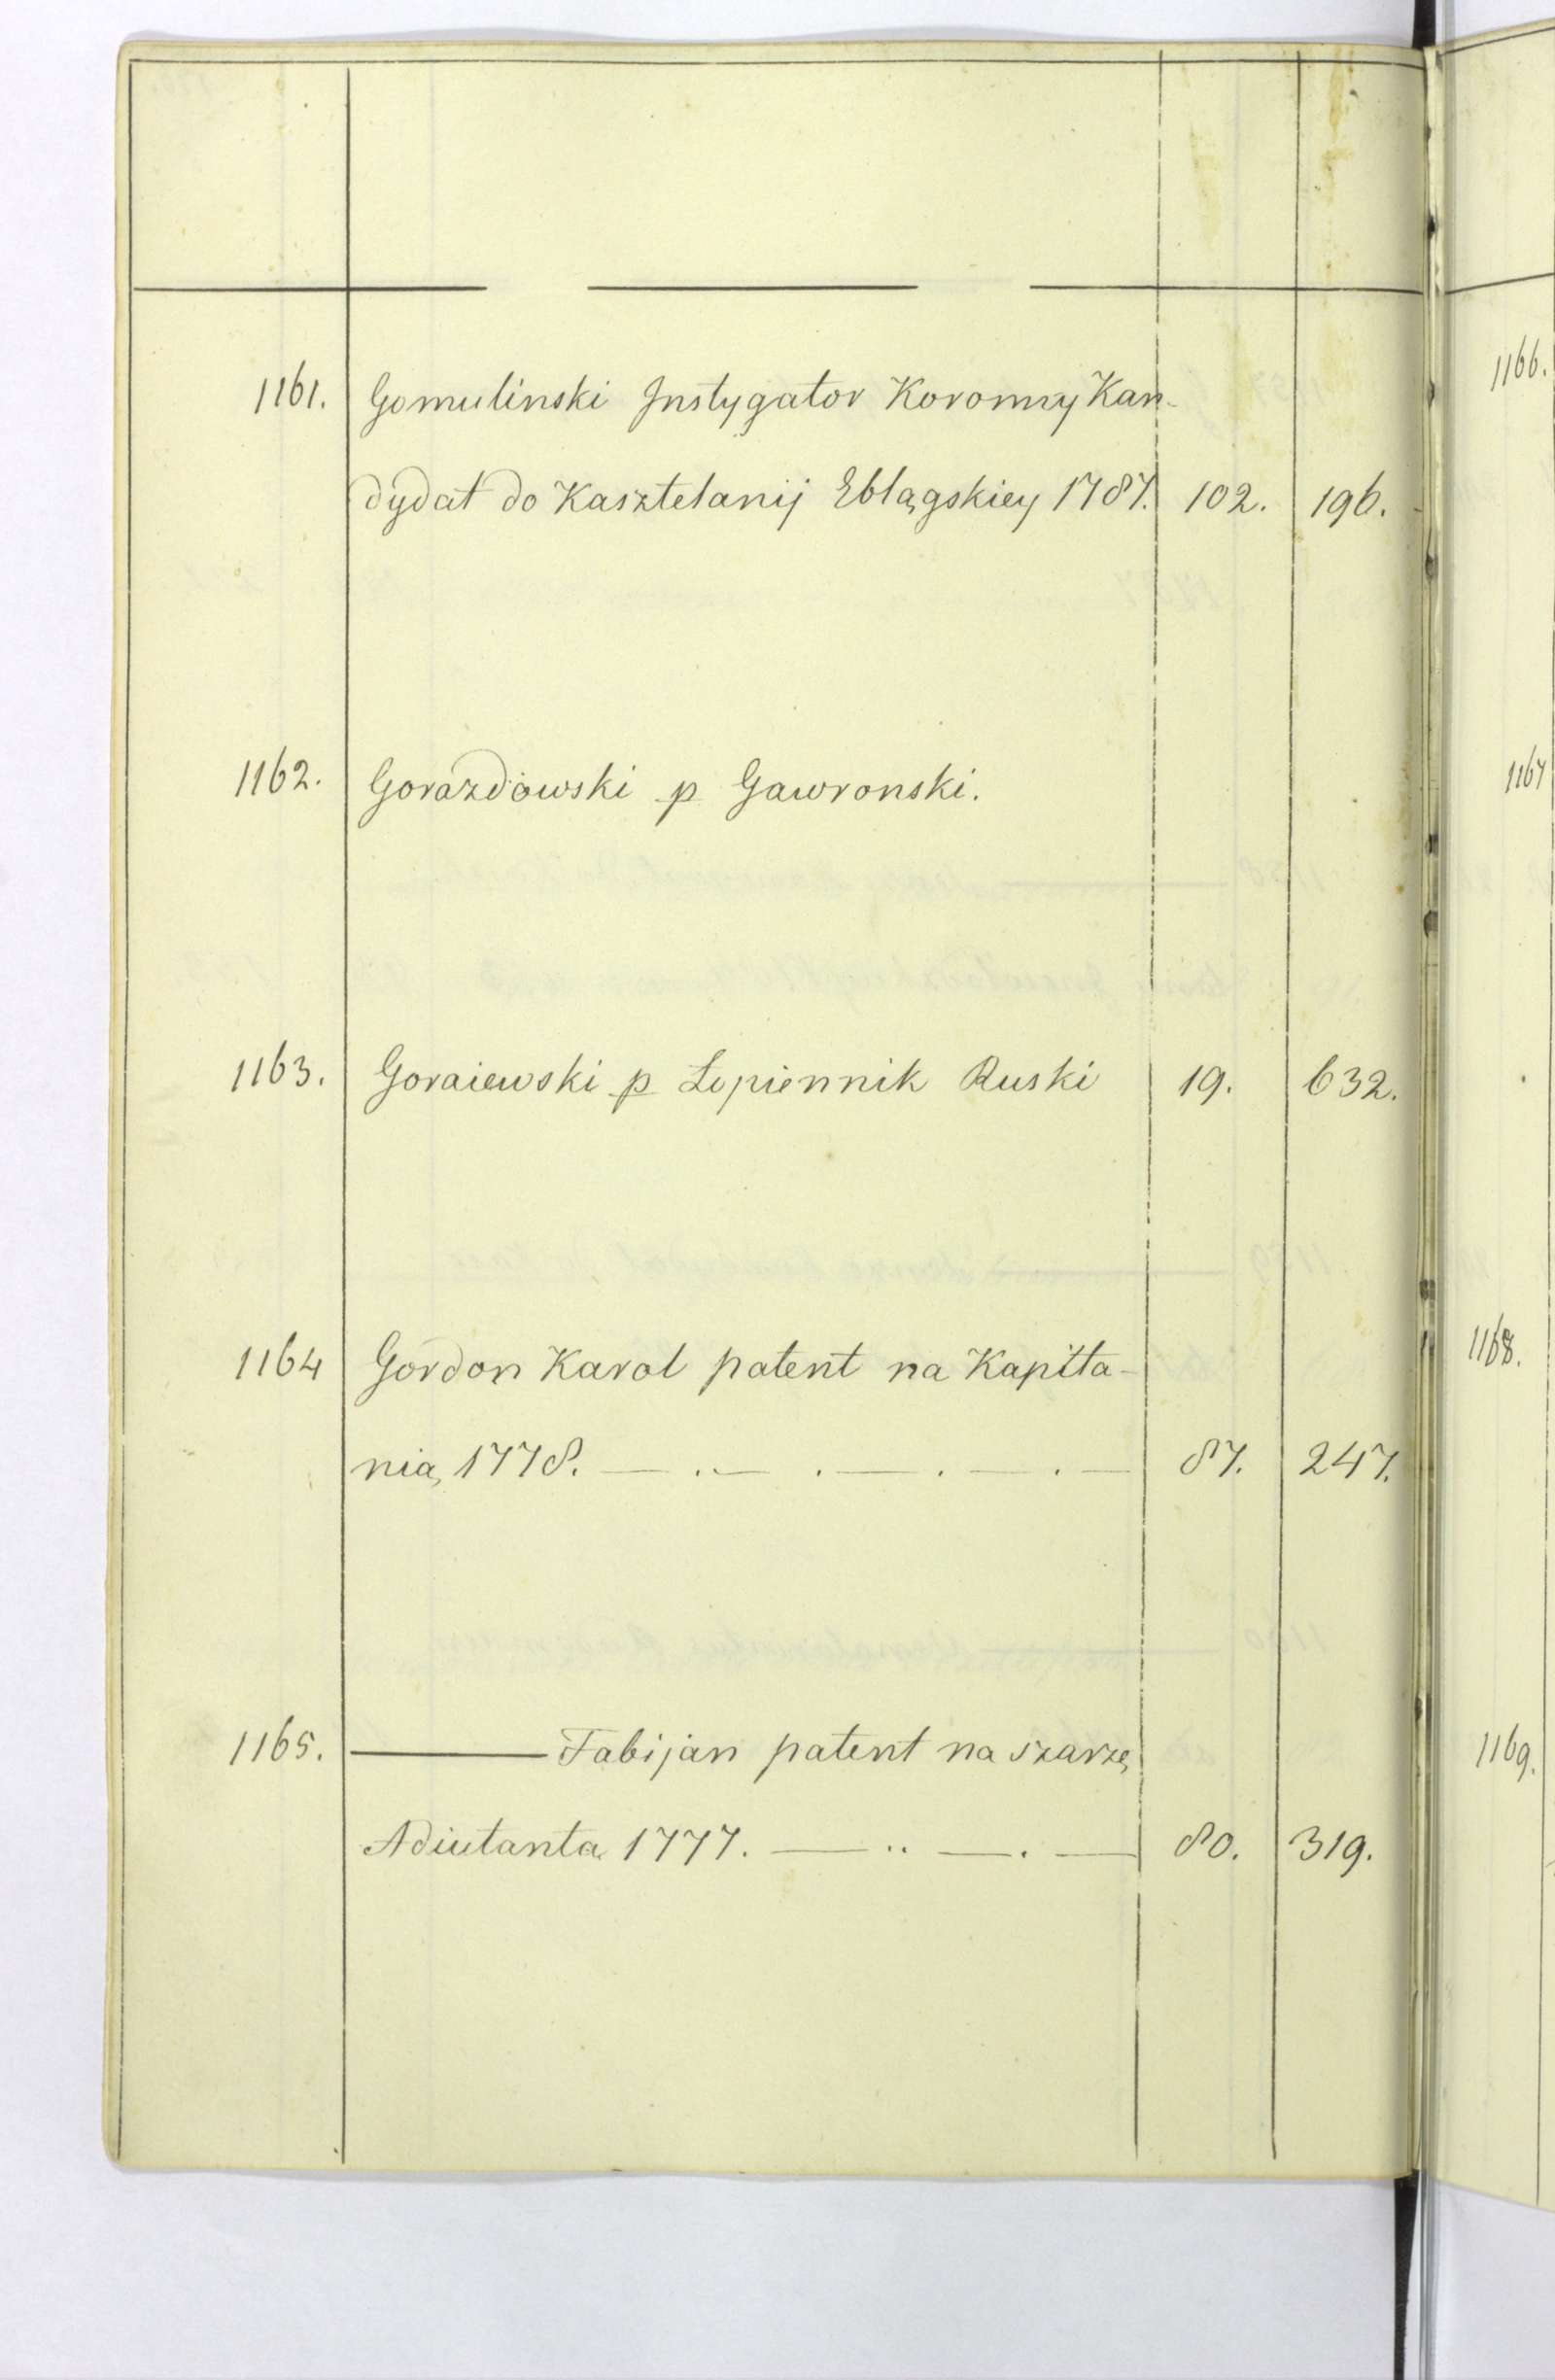 1161. Gomulinski Instygator Koronny Kan-
dydat do Kasztelanij Eblągskiey 1787. 102. 196.
1162. Gorazdowski p Gawronski.
1163. Goraiewski p Lopiennik Ruski 19. 632.
1164 Gordon Karol patent na Kapita-
nia, 1778. 87. 247.
1165. ——— Fabijan patent na szarzę
Adiutanta 1777. 80. 319.
1166.
1167
1168.
1169.